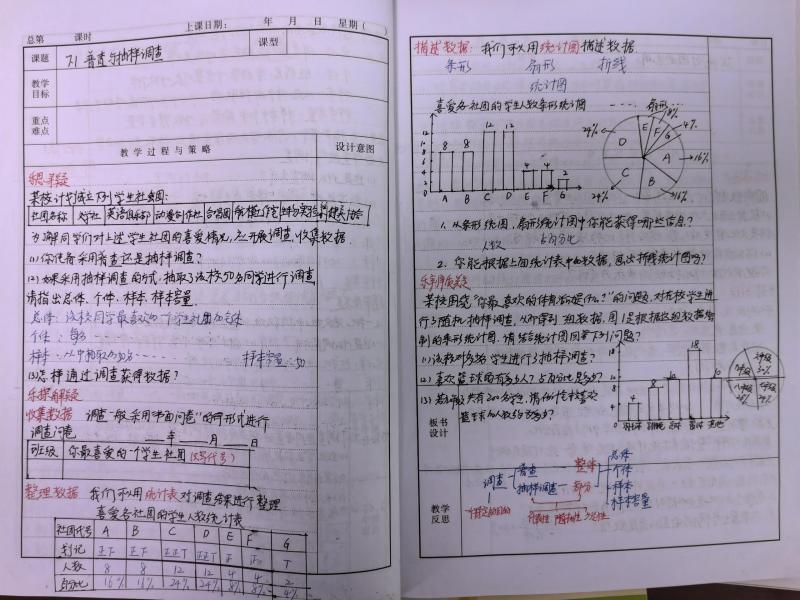 总第 课时
上课日期： 年 月 日 星期（ ）
课题 7.1 普查与抽样调查 课型
教学目标
重点难点
教学过程与策略 设计意图
某校计划成立下列学生社团：
社团名称 文学社 英语俱乐部 动漫创作社 合唱团
为了解同学们对上述学生社团的喜爱情况，应开展调查，收集数据
(1) 你优先采用普查还是抽样调查？
(2) 如果采用抽样调查的方式，抽取了该校50名同学进行调查
请指出总体、个体、样本、样本容量.
总体：该校同学最喜欢的一个学生社团的全体
个体：每名……
样本：从中抽取的50名…… 样本容量：50
(3) 怎样通过调查获得数据？
收集数据 调查一般采用"书面问卷"的形式进行
调查问卷 年 月 日
班级 你最喜爱的一个学生社团（填写代号）
整理数据 我们可以用统计表对调查结果进行整理
喜爱各社团的学生人数统计表
社团代号 A B C D E F G
划记 正下 正下 正正丁 正正丁 丁
人数 8 8 12 12 4 4 2
百分比 16% 16% 24% 24% 8% 8% 4%
描述数据：我们可以用统计图描述数据
条形 扇形 折线
统计图
喜爱各社团的学生人数条形统计图 …… 扇形…
12 10 8 6 4 2 0
8 8 12 12 4 4 2
A B C D E F G
A B C D E F G
24% 8% 4% 16% 16% 24%
1. 从条形统计图，扇形统计图中你能获得哪些信息？
人数 占百分比
2. 你能根据上面统计表中的数据，画出折线统计图吗？
某校围绕"你最喜欢的体育活动是什么？"的问题，对在校学生进
行了随机抽样调查，从而得到一组数据，图1是根据这组数据绘
制的条形统计图，请结合统计图回答下列问题？
(1) 该校对多少名学生进行了抽样调查？
(2) 喜欢篮球的有多少人？占百分比是多少？
4 8 10 18 10
其他
板书设计
教学反思
调查 普查 整体 总体
抽样调查 部分 个体
样本
样本容量